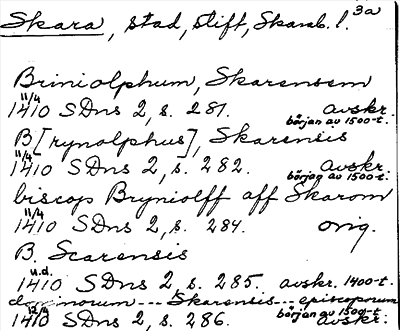 Skara, stad, stift, Skarab. l. 3a
Briniolphum, Skarensem
11/4
1410 SDns 2, s. 281. avskr.
början av 1500-t.
B[rynolphus], Skarensis
11/4
1410 SDns 2, s. 282. avskr.
början av 1500-t.
biscop Bryniolff aff Skarom
11/4
1410 SDns 2, s. 284. orig.
B. Scarensis
u.d.
1410 SDns 2, s. 285. avskr. 1400-t.
dominorum --- Skarensis -- episcoporum
12/4
1410 SDns 2, s. 286. avskr.